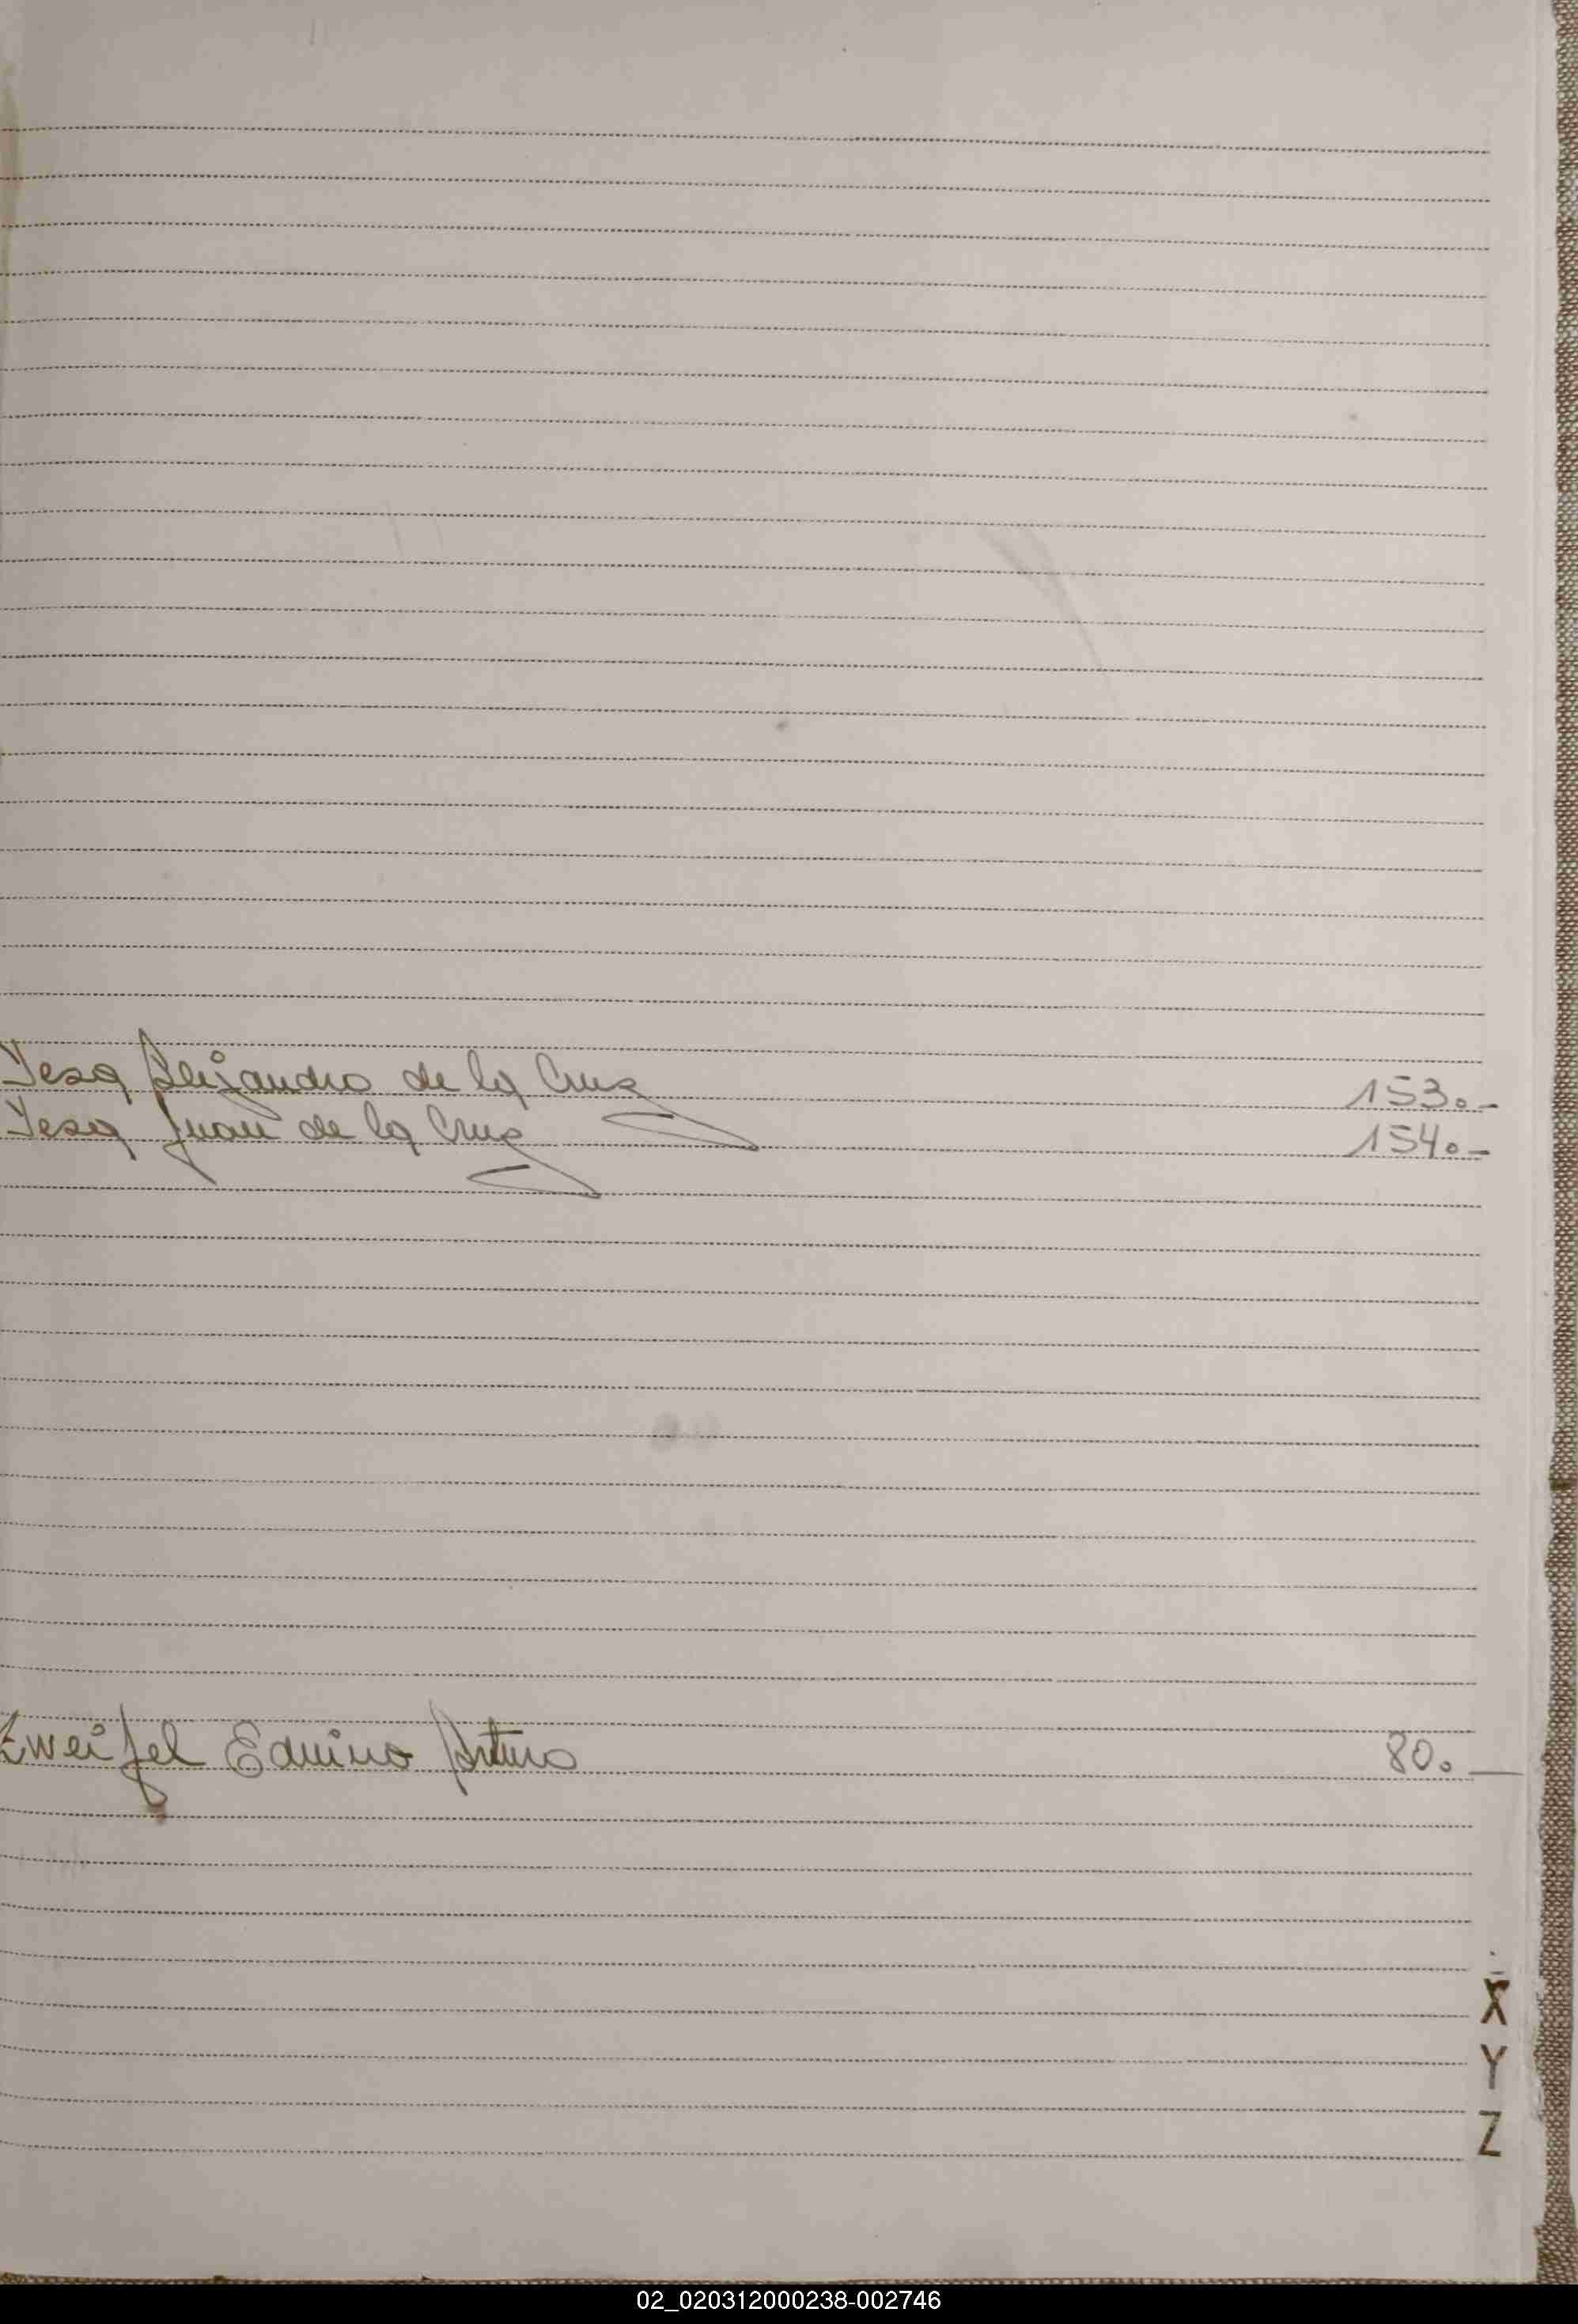 Yesa Alejandro de la Cruz 153.-
Yesa Juan de la Cruz 154.-
Zweifel Edmino Arturo 80.-
X
Y
Z
02_020312000238-002746